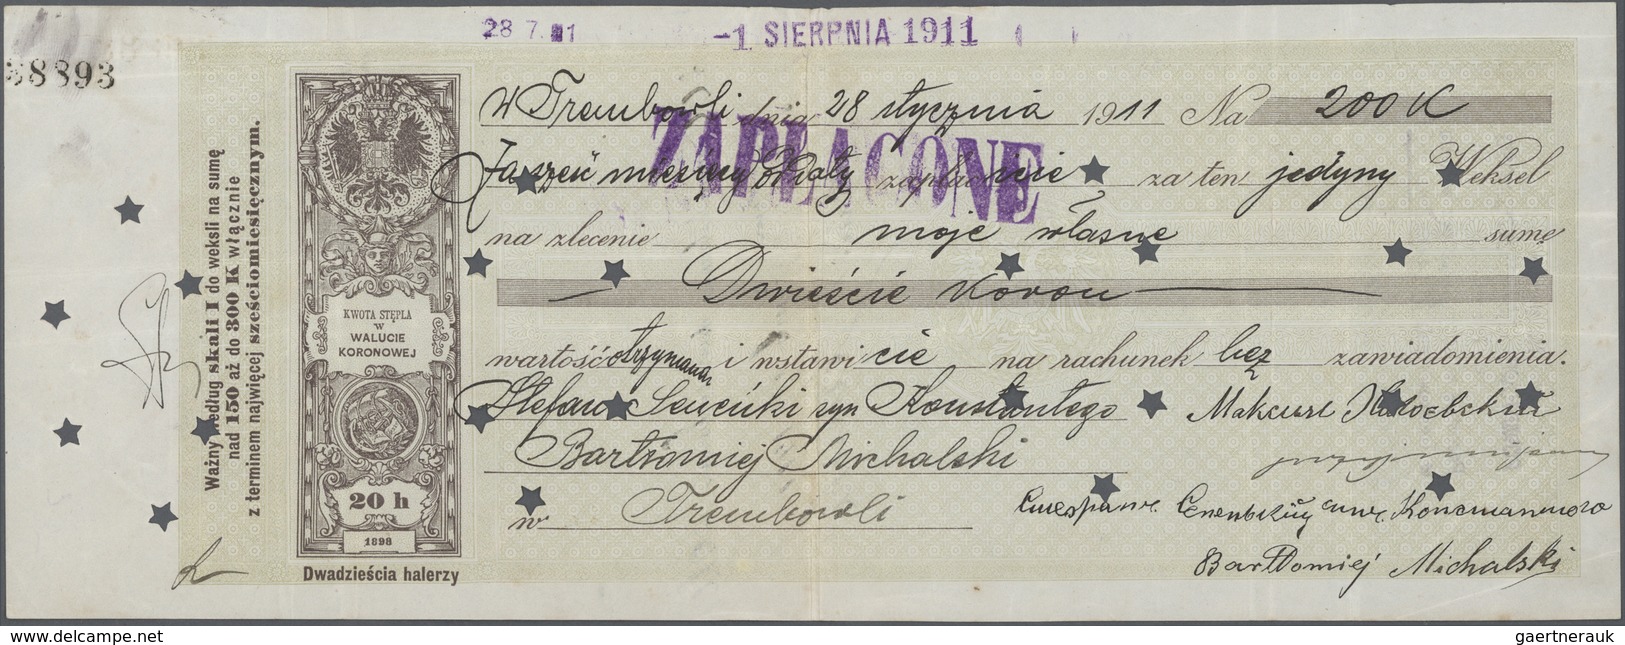 28 7. 11
-1 SIERPNIA 1911
38893
W Trembowli dnia 28 stycznia 1911 Na 200 K
ZAPŁACONE
Za sześć miesięcy zapła cie za ten jedyny Weksel
na zlecenie moje własne sumę
Dwieście Koron
wartość otrzymaną i wstawi cie na rachunek bez zawiadomienia.
Stefan syn Konstantego
Bartłomiej Michalski
w Trembowli
Bartłomiej Michalski
Ważny według skali I do weksli na sumę
nad 150 aż do 300 K włącznie
z terminem najwięcej sześciomiesięcznym.
KWOTA STĘPLA
W
WALUCIE
KORONOWEJ
20 h
1898
Dwadzieścia halerzy
www.delcampe.net
gaertnerauk